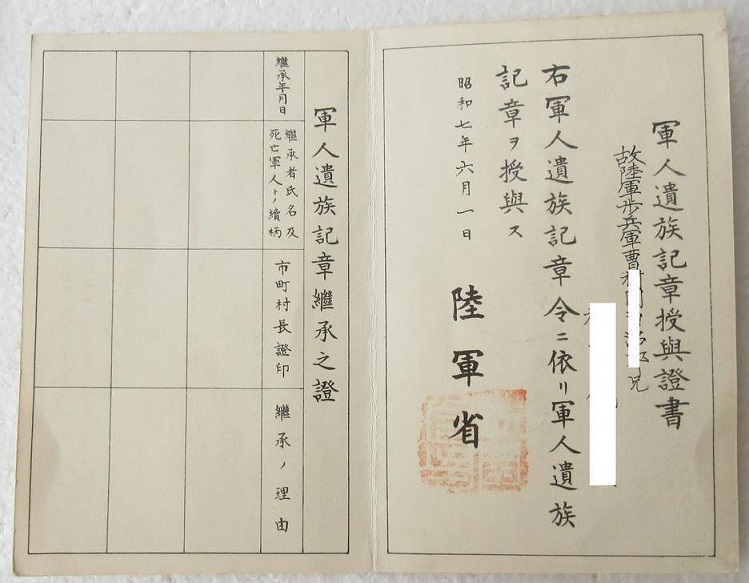 軍人遺族記章授與證書
故陸軍歩兵軍曹
兄
右軍人遺族記章令ニ依リ軍人遺族
記章ヲ授與ス
昭和七年六月一日
陸軍省
軍人遺族記章繼承之證
繼承年月日
繼承者氏名及
死亡軍人トノ續柄
市町村長證印
繼承ノ理由